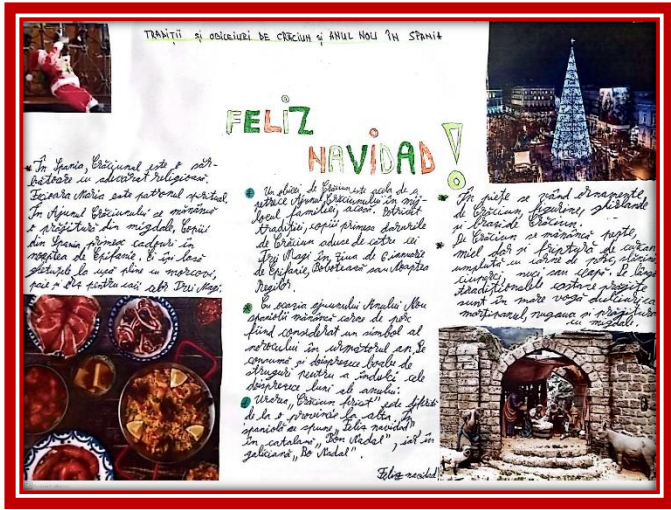 TRADIȚII și OBICEIURI DE CRĂCIUN și ANUL NOU ÎN SPANIA
FELIZ
NAVIDAD!
În Spania, Crăciunul este o săr-
bătoare cu adevărat religioasă.
Fecioara Maria este patronul spiritual.
În Ajunul Crăciunului se mănâncă
o prăjitură din migdale. Copiii
din Spania primesc cadouri în
noaptea de Epifanie. Ei își lasă
ghetuțele la ușă pline cu morcovi,
paie și orz pentru caii celor Trei Magi.
Un obicei de Crăciun este acela de a
petrece Ajunul Crăciunului în mij-
locul familiei, acasă. Potrivit
tradiției, copiii primesc darurile
de Crăciun aduse de către cei
Trei Magi în ziua de 6 ianuarie
de Epifanie, Bobotează sau Noaptea
Regilor.
Cu ocazia ajunului Anului Nou
spaniolii mănâncă carne de porc
fiind considerat un simbol al
norocului în următorul an. Se
consumă și doisprezece boabe de
struguri pentru a îndulci cele
doisprezece luni ale anului.
Urarea "Crăciun fericit" este diferită
de la o provincie la alta. În
spaniolă se spune "Feliz navidad"
în catalană "Bon Nadal", iar în
galiciană "Bo Nadal".
Feliz navidad
În piețe se vând ornamente
de Crăciun, figurine, ghirlande
și brazi de Crăciun.
De Crăciun se mănâncă pește,
miel dar și friptură de curcan
umplută cu carne de porc, slănină
ciuperci, nuci sau ceapă. Pe lângă
tradiționalele castane prăjite
sunt în mare vogă dulciurile
marțipanul, nugaua și prăjitura
cu migdale.